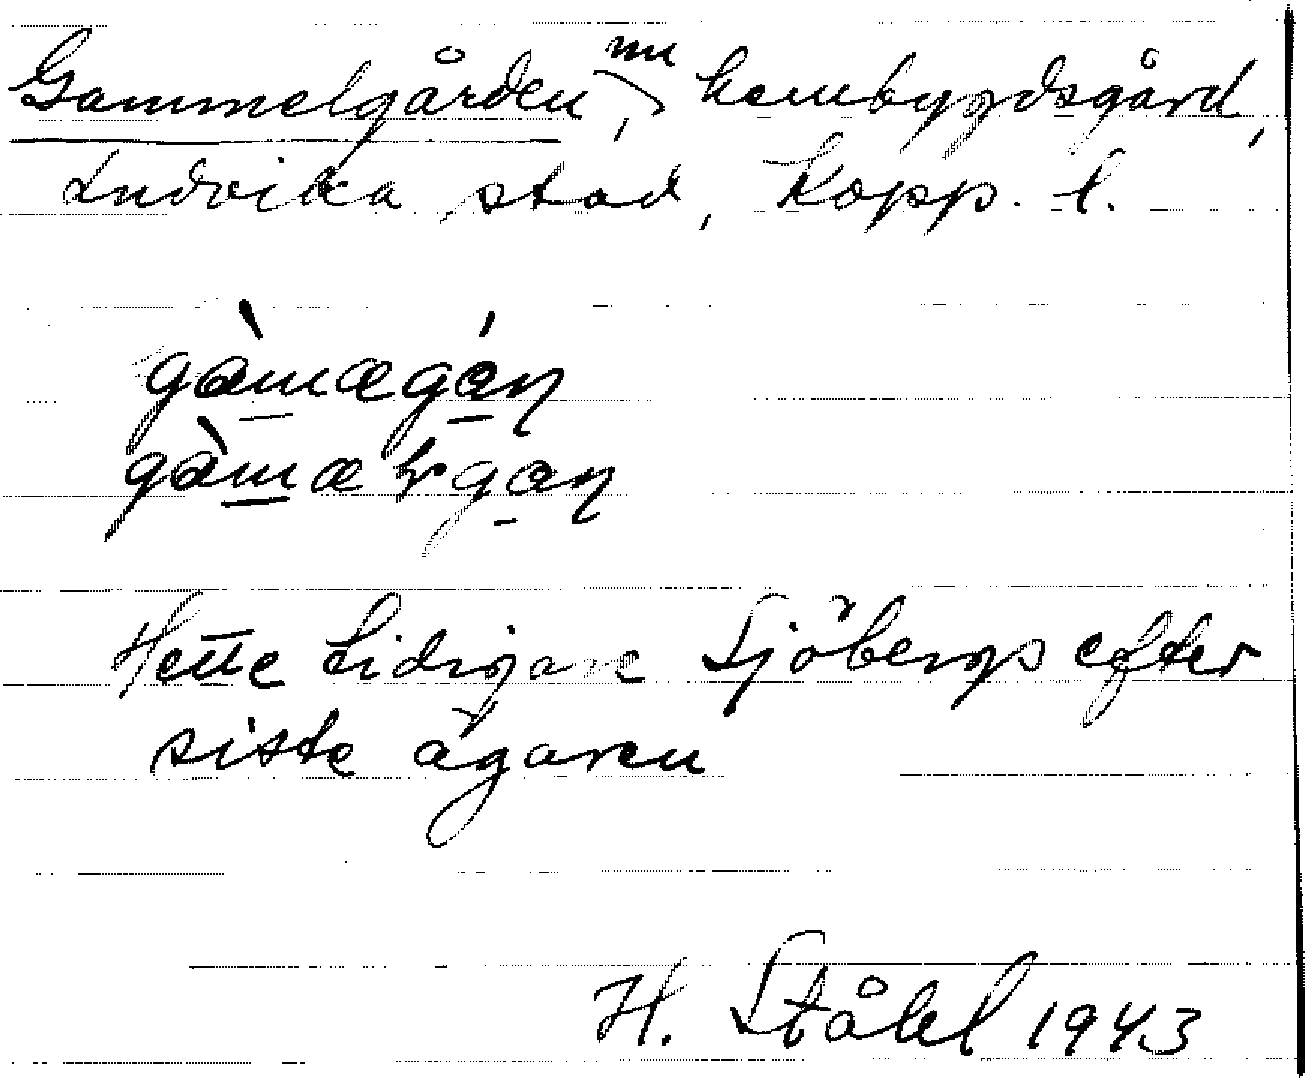 Gammelgården, nu hembygdsgård,
Ludvika stad, Kopp. l.
gàmægáṇ
gàmæ
Hette tidigare Sjöbergs efter
siste ägaren
H. Ståhl 1943